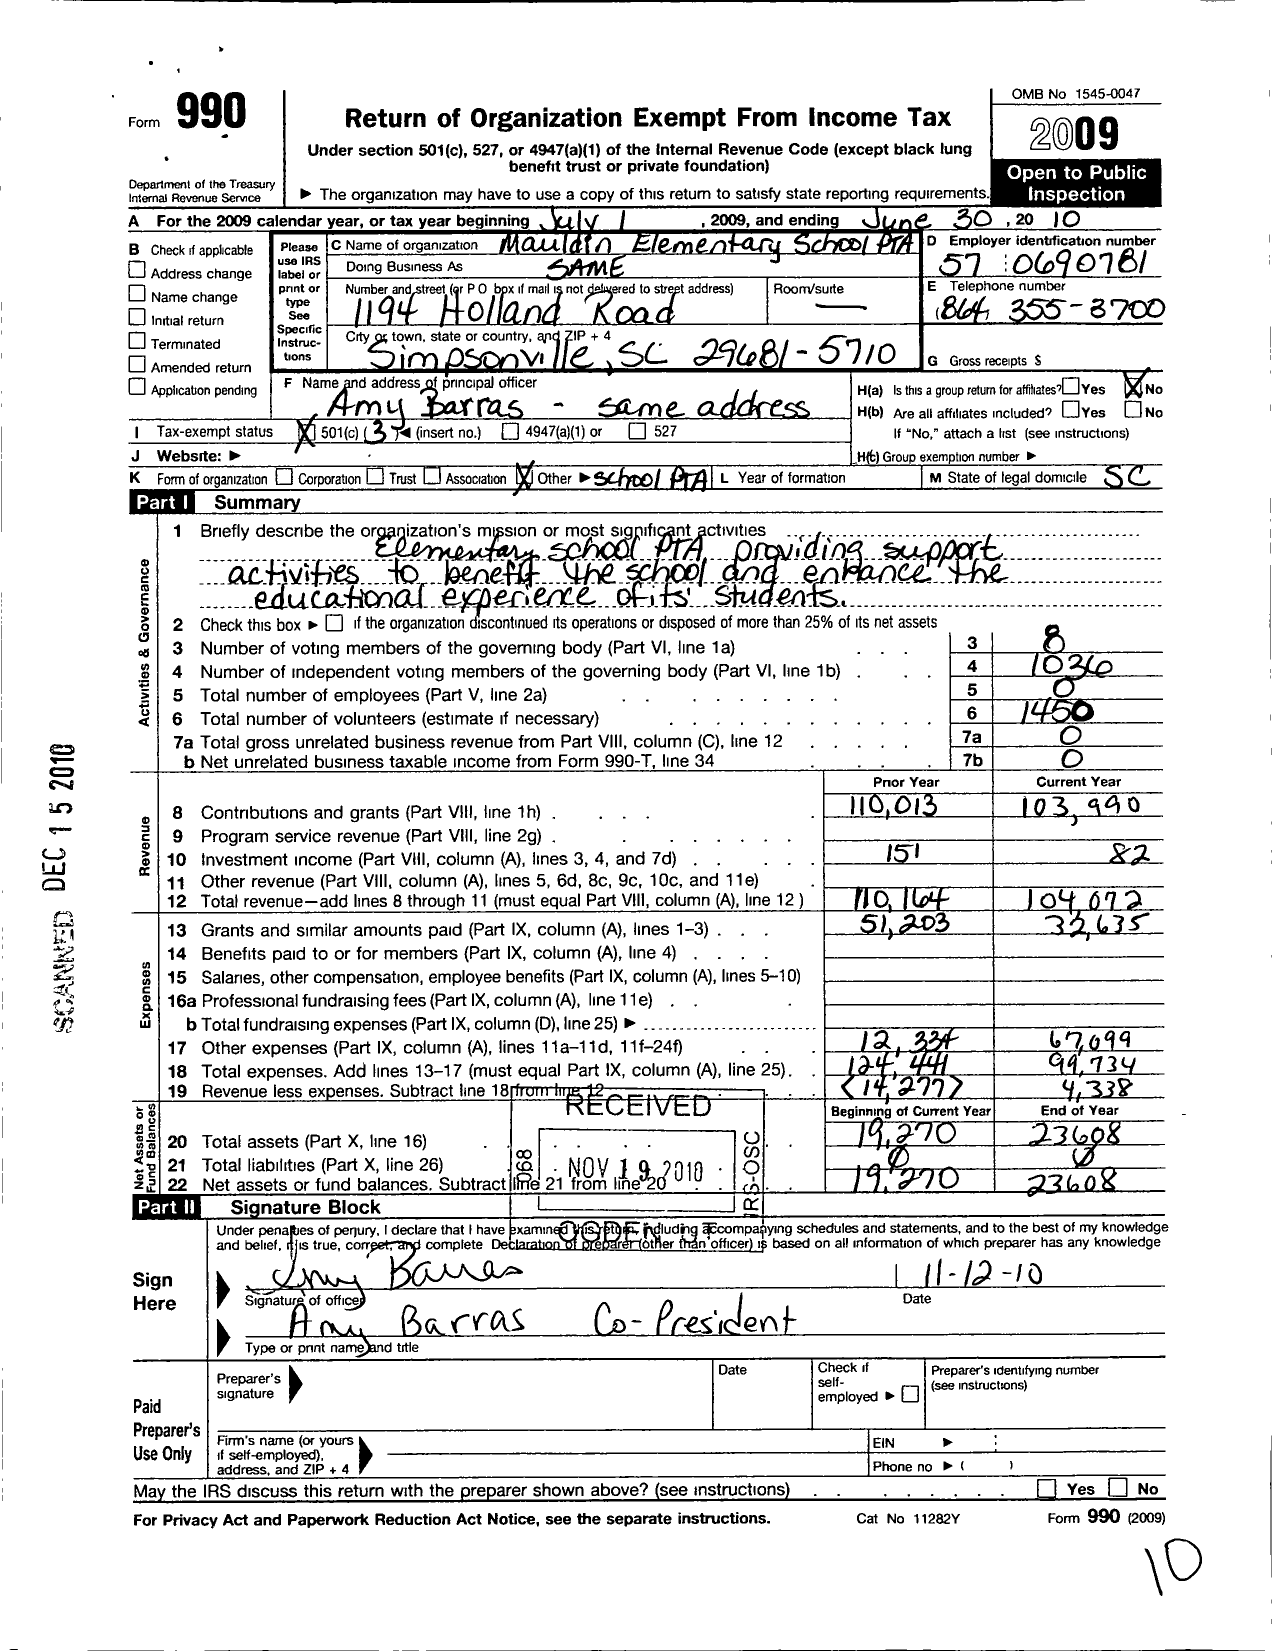 OMB No 1545-0047
Form 990
Return of Organization Exempt From Income Tax
2009
Under section 501(c), 527, or 4947(a)(1) of the Internal Revenue Code (except black lung
benefit trust or private foundation)
Open to Public
Inspection
Department of the Treasury
Internal Revenue Service
► The organization may have to use a copy of this return to satisfy state reporting requirements.
A For the 2009 calendar year, or tax year beginning July 1, 2009, and ending June 30, 20 10
B Check if applicable
Address change
Name change
Initial return
Terminated
Amended return
Application pending
Please
use IRS
label or
print or
type
See
Specific
Instruc-
tions
C Name of organization Mauldin Elementary School PTA
Doing Business As SAME
Number and street (or P O box if mail is not delivered to street address) Room/suite
1194 Holland Road —
City or town, state or country, and ZIP + 4
Simpsonville, SC 29681-5710
D Employer identification number
57 0690781
E Telephone number
(864) 355-3700
G Gross receipts $
F Name and address of principal officer
Amy Barras - same address
H(a) Is this a group return for affiliates? Yes X No
H(b) Are all affiliates included? Yes No
If "No," attach a list (see instructions)
H(c) Group exemption number ►
I Tax-exempt status X 501(c) (3) ◄ (insert no.) 4947(a)(1) or 527
J Website: ►
K Form of organization Corporation Trust Association X Other ► School PTA L Year of formation M State of legal domicile SC
Part I Summary
Activities & Governance
1 Briefly describe the organization's mission or most significant activities
Elementary school PTA providing support
activities to benefit the school and enhance the
educational experience of its' students.
2 Check this box ► if the organization discontinued its operations or disposed of more than 25% of its net assets
3 Number of voting members of the governing body (Part VI, line 1a) 3 8
4 Number of independent voting members of the governing body (Part VI, line 1b) 4 1036
5 Total number of employees (Part V, line 2a) 5 0
6 Total number of volunteers (estimate if necessary) 6 1450
7a Total gross unrelated business revenue from Part VIII, column (C), line 12 7a 0
b Net unrelated business taxable income from Form 990-T, line 34 7b 0
Prior Year Current Year
Revenue
8 Contributions and grants (Part VIII, line 1h) 110,013 103,990
9 Program service revenue (Part VIII, line 2g)
10 Investment income (Part VIII, column (A), lines 3, 4, and 7d) 151 82
11 Other revenue (Part VIII, column (A), lines 5, 6d, 8c, 9c, 10c, and 11e)
12 Total revenue—add lines 8 through 11 (must equal Part VIII, column (A), line 12) 110,164 104,072
Expenses
13 Grants and similar amounts paid (Part IX, column (A), lines 1–3) 51,203 32,635
14 Benefits paid to or for members (Part IX, column (A), line 4)
15 Salaries, other compensation, employee benefits (Part IX, column (A), lines 5–10)
16a Professional fundraising fees (Part IX, column (A), line 11e)
b Total fundraising expenses (Part IX, column (D), line 25) ►
17 Other expenses (Part IX, column (A), lines 11a–11d, 11f–24f) 12,334 67,099
18 Total expenses. Add lines 13–17 (must equal Part IX, column (A), line 25) 124,441 99,734
19 Revenue less expenses. Subtract line 18 from line 12 <14,277> 4,338
Net Assets or
Fund Balances
Beginning of Current Year End of Year
20 Total assets (Part X, line 16) 19,270 23608
21 Total liabilities (Part X, line 26) 0 0
22 Net assets or fund balances. Subtract line 21 from line 20 19,270 23608
RECEIVED
068
NOV 19 2010
IRS-OSC
OGDEN, UT
SCANNED DEC 15 2010
Part II Signature Block
Under penalties of perjury, I declare that I have examined this return, including accompanying schedules and statements, and to the best of my knowledge
and belief, it is true, correct, and complete Declaration of preparer (other than officer) is based on all information of which preparer has any knowledge
Sign
Here
Amy Barras 11-12-10
Signature of officer Date
Amy Barras Co-President
Type or print name and title
Paid
Preparer's
Use Only
Preparer's
signature
Date
Check if
self-
employed ►
Preparer's identifying number
(see instructions)
Firm's name (or yours
if self-employed),
address, and ZIP + 4
EIN ►
Phone no ► ( )
May the IRS discuss this return with the preparer shown above? (see instructions) Yes No
For Privacy Act and Paperwork Reduction Act Notice, see the separate instructions. Cat No 11282Y Form 990 (2009)
10